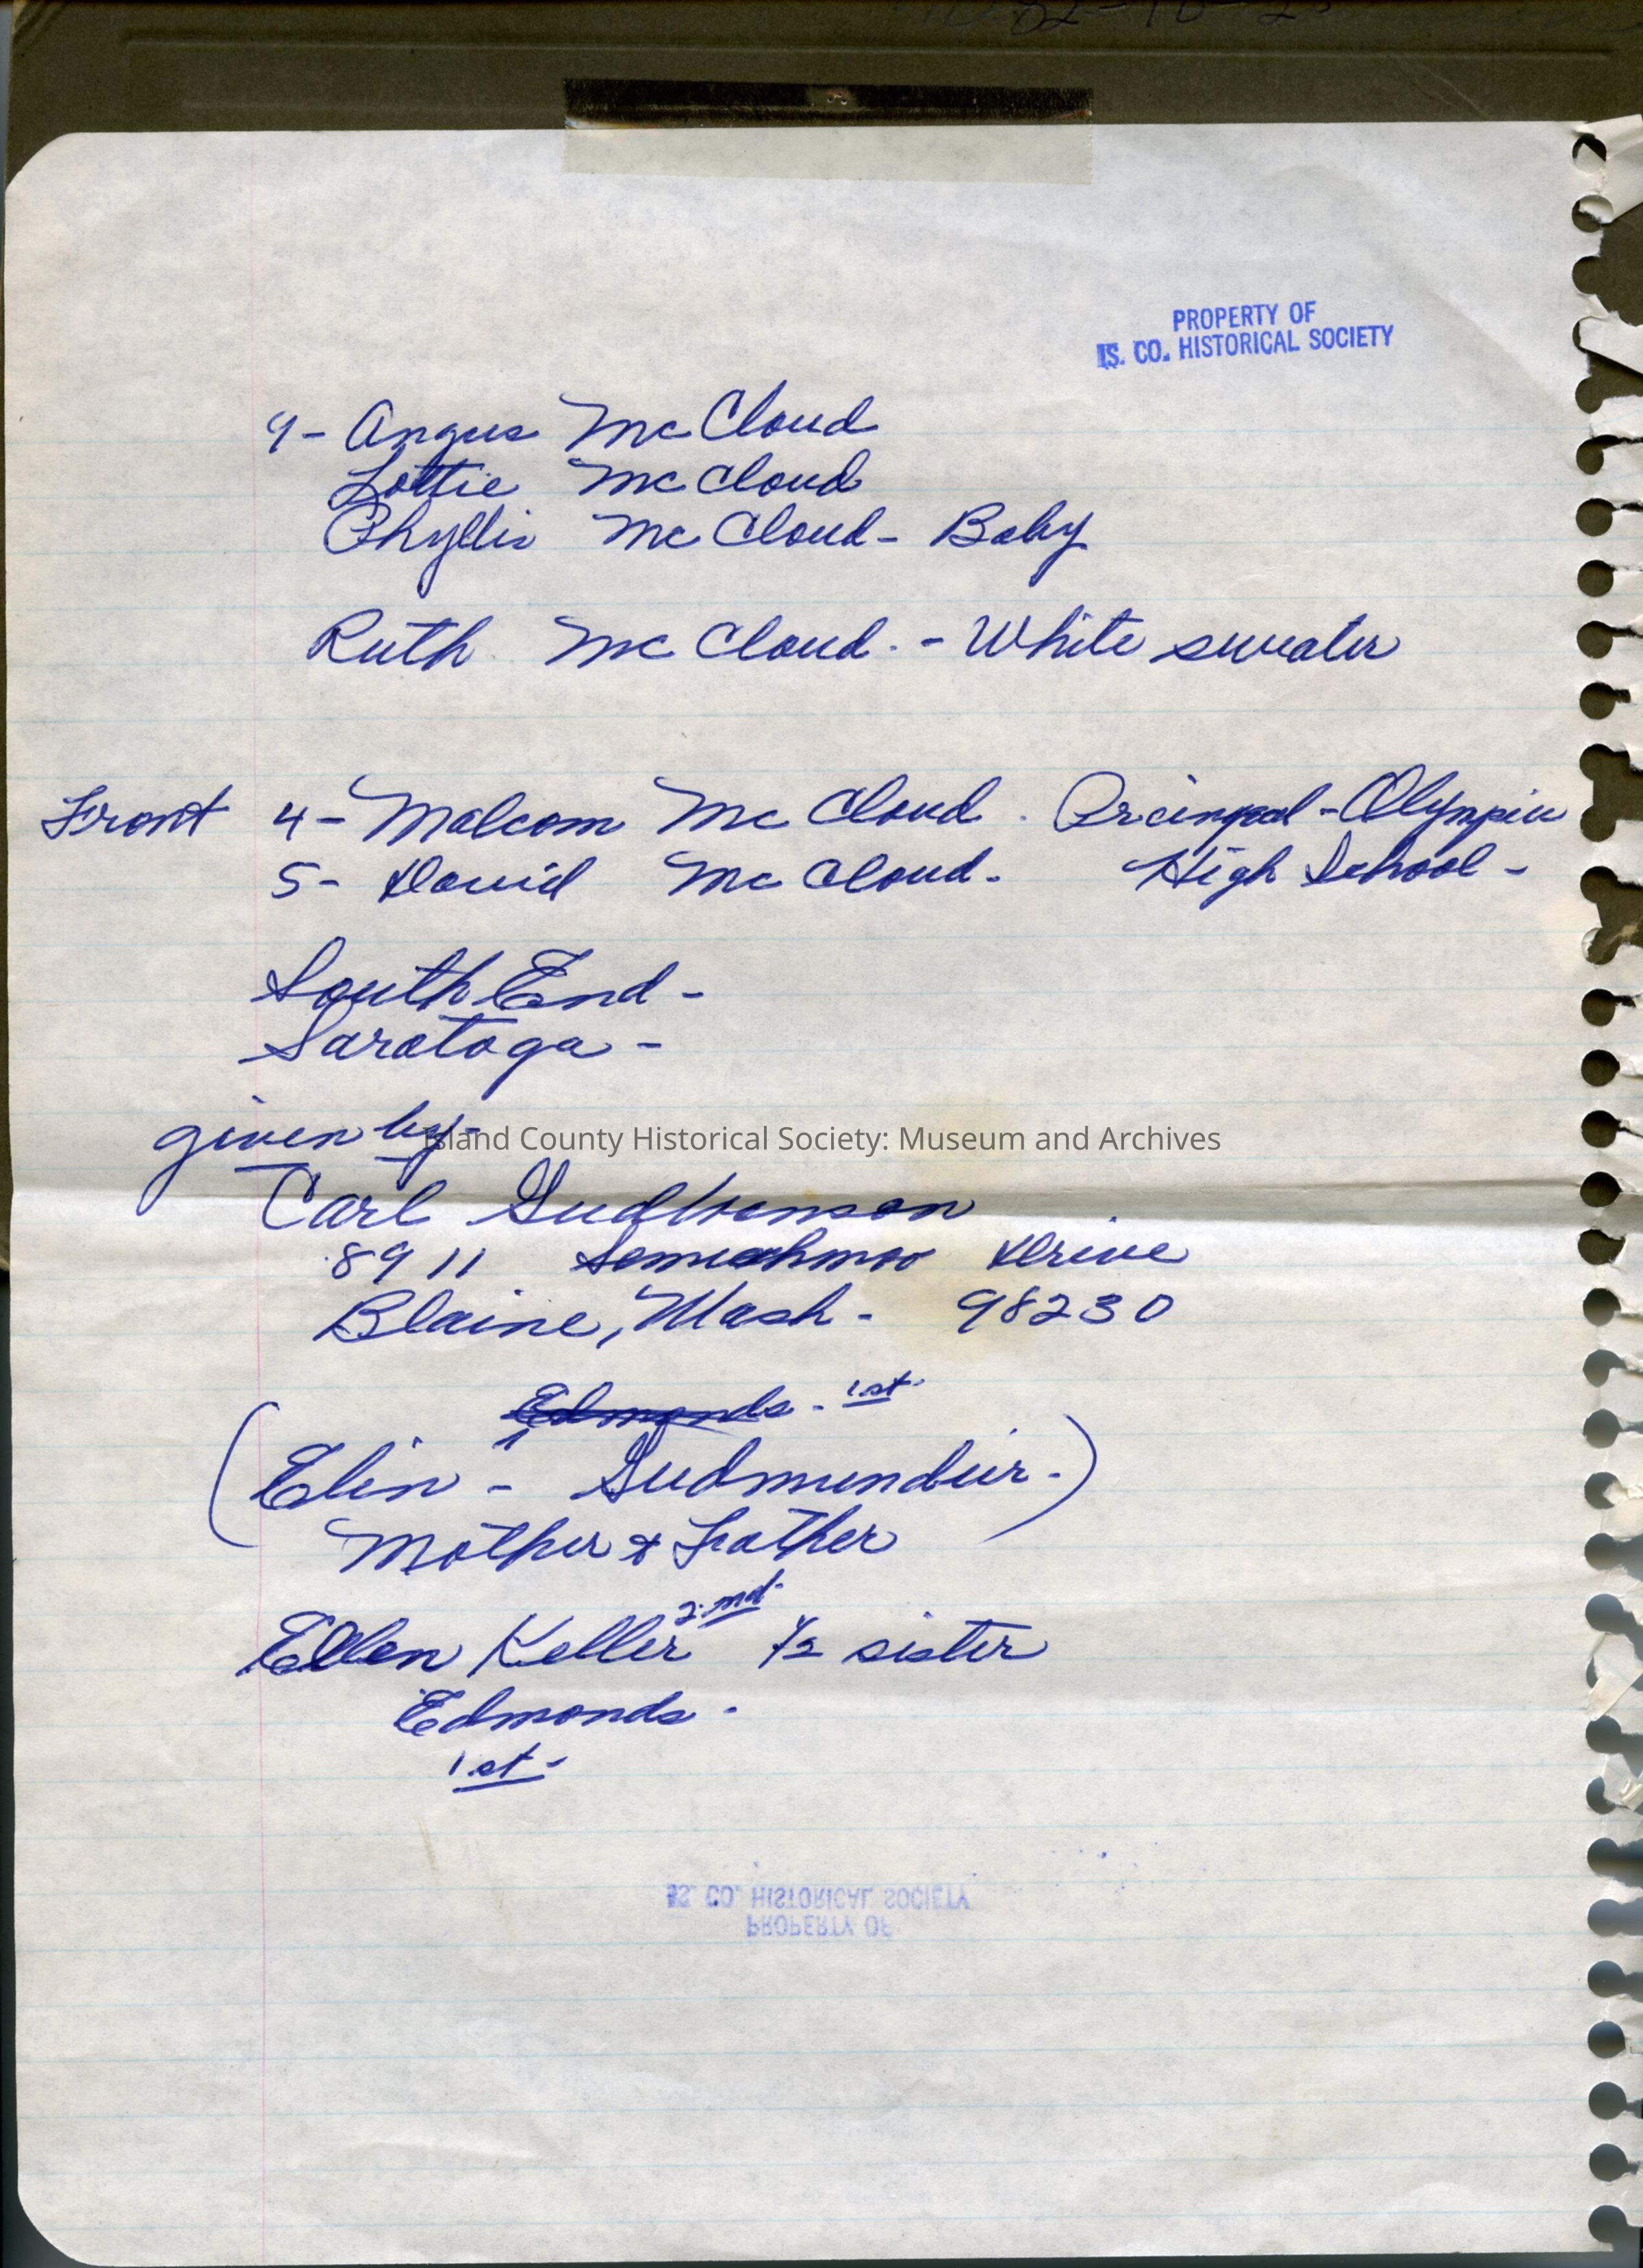 PROPERTY OF
IS. CO. HISTORICAL SOCIETY
9- Angus McCloud
Lottie McCloud
Phyllis McCloud - Baby
Ruth McCloud. - White sweater
Front 4- Malcom McCloud. Principal - Olympic
5- David McCloud. High School -
South End -
Saratoga -
given by -
Island County Historical Society: Museum and Archives
Carl
8911 Semiahmoo Drive
Blaine, Wash - 98230
Edmonds - 1st.
(Elin - Gudmundur.)
Mother & Father
2nd.
Ellen Keller 1/2 sister
Edmonds.
1st -
IS. CO. HISTORICAL SOCIETY
PROPERTY OF